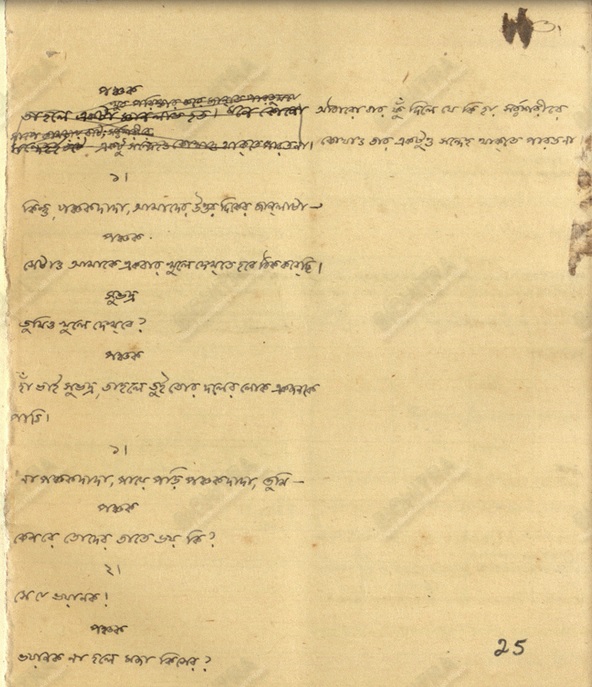 পঞ্চক
তাহলে আঠারোবার ফুঁ দিলে যে কি হয় সর্ব্বশরীরে
কোথাও তার একটুও সন্দেহ থাকতে পারত না
১।
কিন্তু পঞ্চকদাদা, আমাদের উত্তর দিকের জান্‌লাটা —
পঞ্চক
সেটাও আমাকে একবার খুলে দেখ্‌তে হবে ঠিক করেছি।
সুভদ্র
তুমিও খুলে দেখ্‌বে?
পঞ্চক
হাঁ ভাই সুভদ্র, তাহলে তুই তোর দলের লোক একজনকে
পাবি।
১।
না পঞ্চকদাদা, পায়ে পড়ি পঞ্চকদাদা, তুমি —
পঞ্চক
কেনরে তোদের তাতে ভয় কি?
২।
সে যে ভয়ানক!
পঞ্চক
ভয়ানক না হলে মজা কিসের?
25